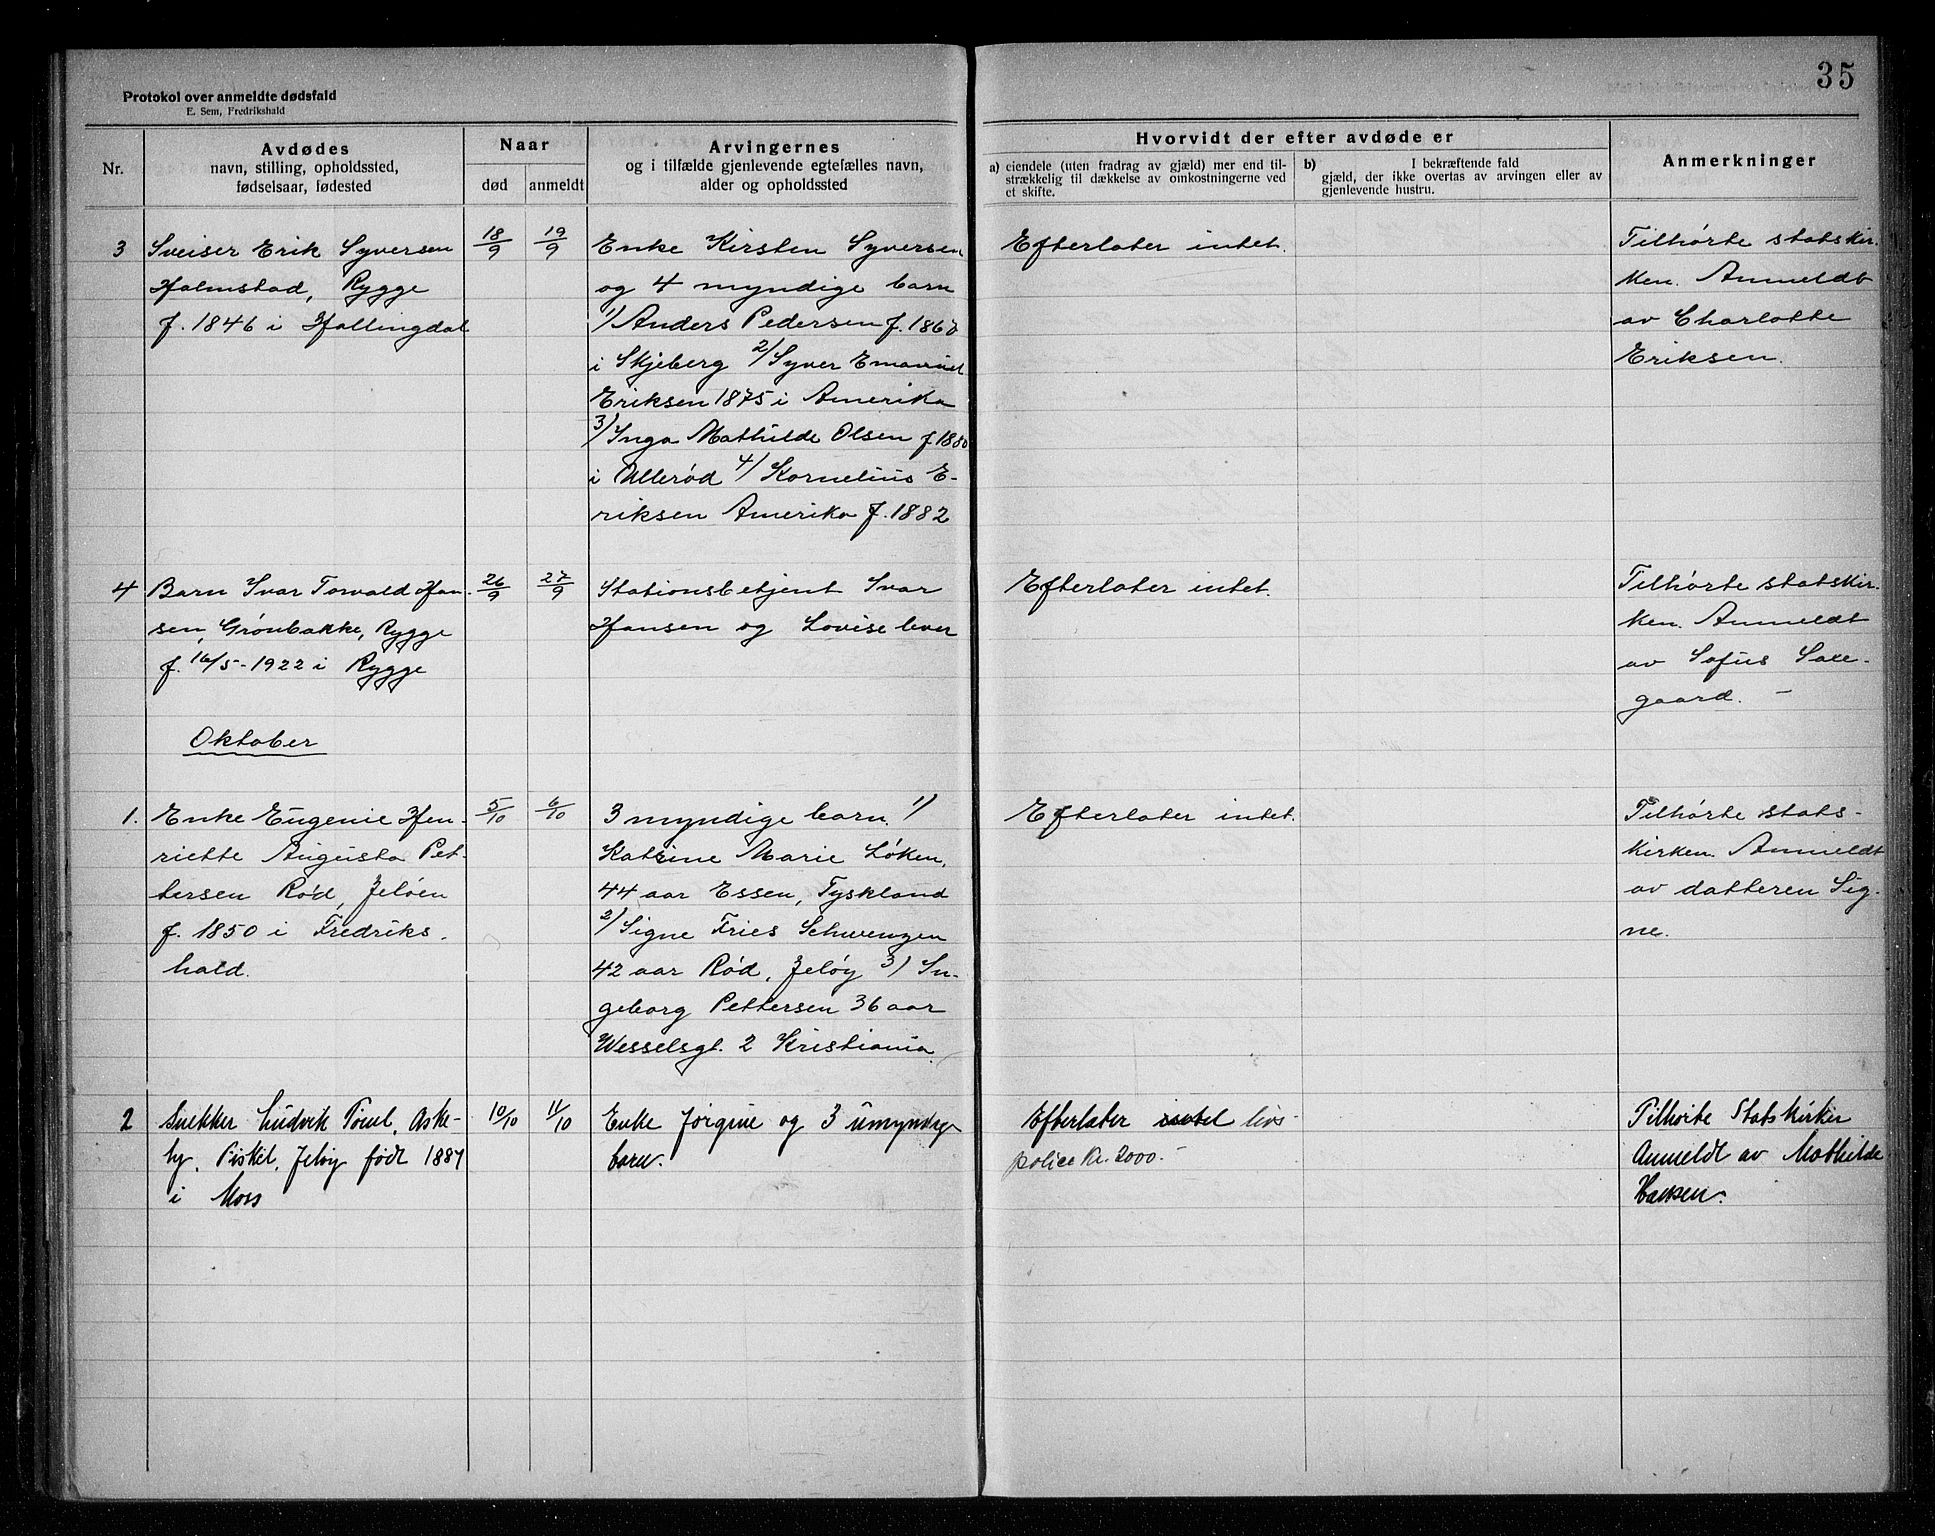 35
Protokol over anmeldte dødsfald
E. Sem, Fredrikshald
Nr.
Avdødes
navn, stilling, opholdssted,
fødselsaar, fødested
Naar
død
anmeldt
Arvingernes
og i tilfælde gjenlevende egtefælles navn,
alder og opholdssted
Hvorvidt der efter avdøde er
a) eiendele (uten fradrag av gjæld) mer end til-
strækkelig til dækkelse av omkostningerne ved
et skifte.
b) I bekræftende fald
gjæld, der ikke overtas av arvingen eller av
gjenlevende hustru.
Anmerkninger
3
Sveiser Erik Syversen
Halmstad, Rygge
f. 1846 i Hallingdal
18/9
19/9
Enke Kirsten Syversen
og 4 myndige barn
1) Anders Pedersen f.
i Skjeberg 2) Syver Emanuel
Eriksen 1875 i Amerika
3) Inga Mathilde Olsen f 1880
i Ullerød 4) Kornelius E-
riksen Amerika f. 1882
Efterlater intet.
Tilhørte statskir-
ken. Anmeldt
av Charlotte
Eriksen.
4
Barn Ivar Torvald Han-
sen, Grønbakke, Rygge
f. 16/5-1922 i Rygge
26/9
27/9
Stationsbetjent Ivar
Hansen og Lovise lever
Efterlater intet.
Tilhørte statskir-
ken. Anmeldt
av Sofus Saxe-
gaard. -
Oktober
1.
Enke Eugenie Hen-
riette Augusta Pet-
tersen Rød, Jeløen
f. 1850 i Fredriks-
hald.
5/10
6/10
3 myndige barn. 1)
Katrine Marie Løken,
44 aar Essen, Tyskland
2) Signe Fries Schwenzen
42 aar Rød, Jeløy 3) In-
geborg Pettersen 36 aar
Wesselsgt. 2 Kristiania.
Efterlater intet.
Tilhørte stats-
kirken. Anmeldt
av datteren Sig-
ne.
2
Snekker Ludvik, Aske-
by, Jeløy født 1887
i Moss
10/10
11/10
Enke Jørgine og 3 umyndige
barn.
Efterlater intet livs-
police kr. 2000.-
Tilhørte Statskirken
Anmeldt av Mathilde
Hansen.